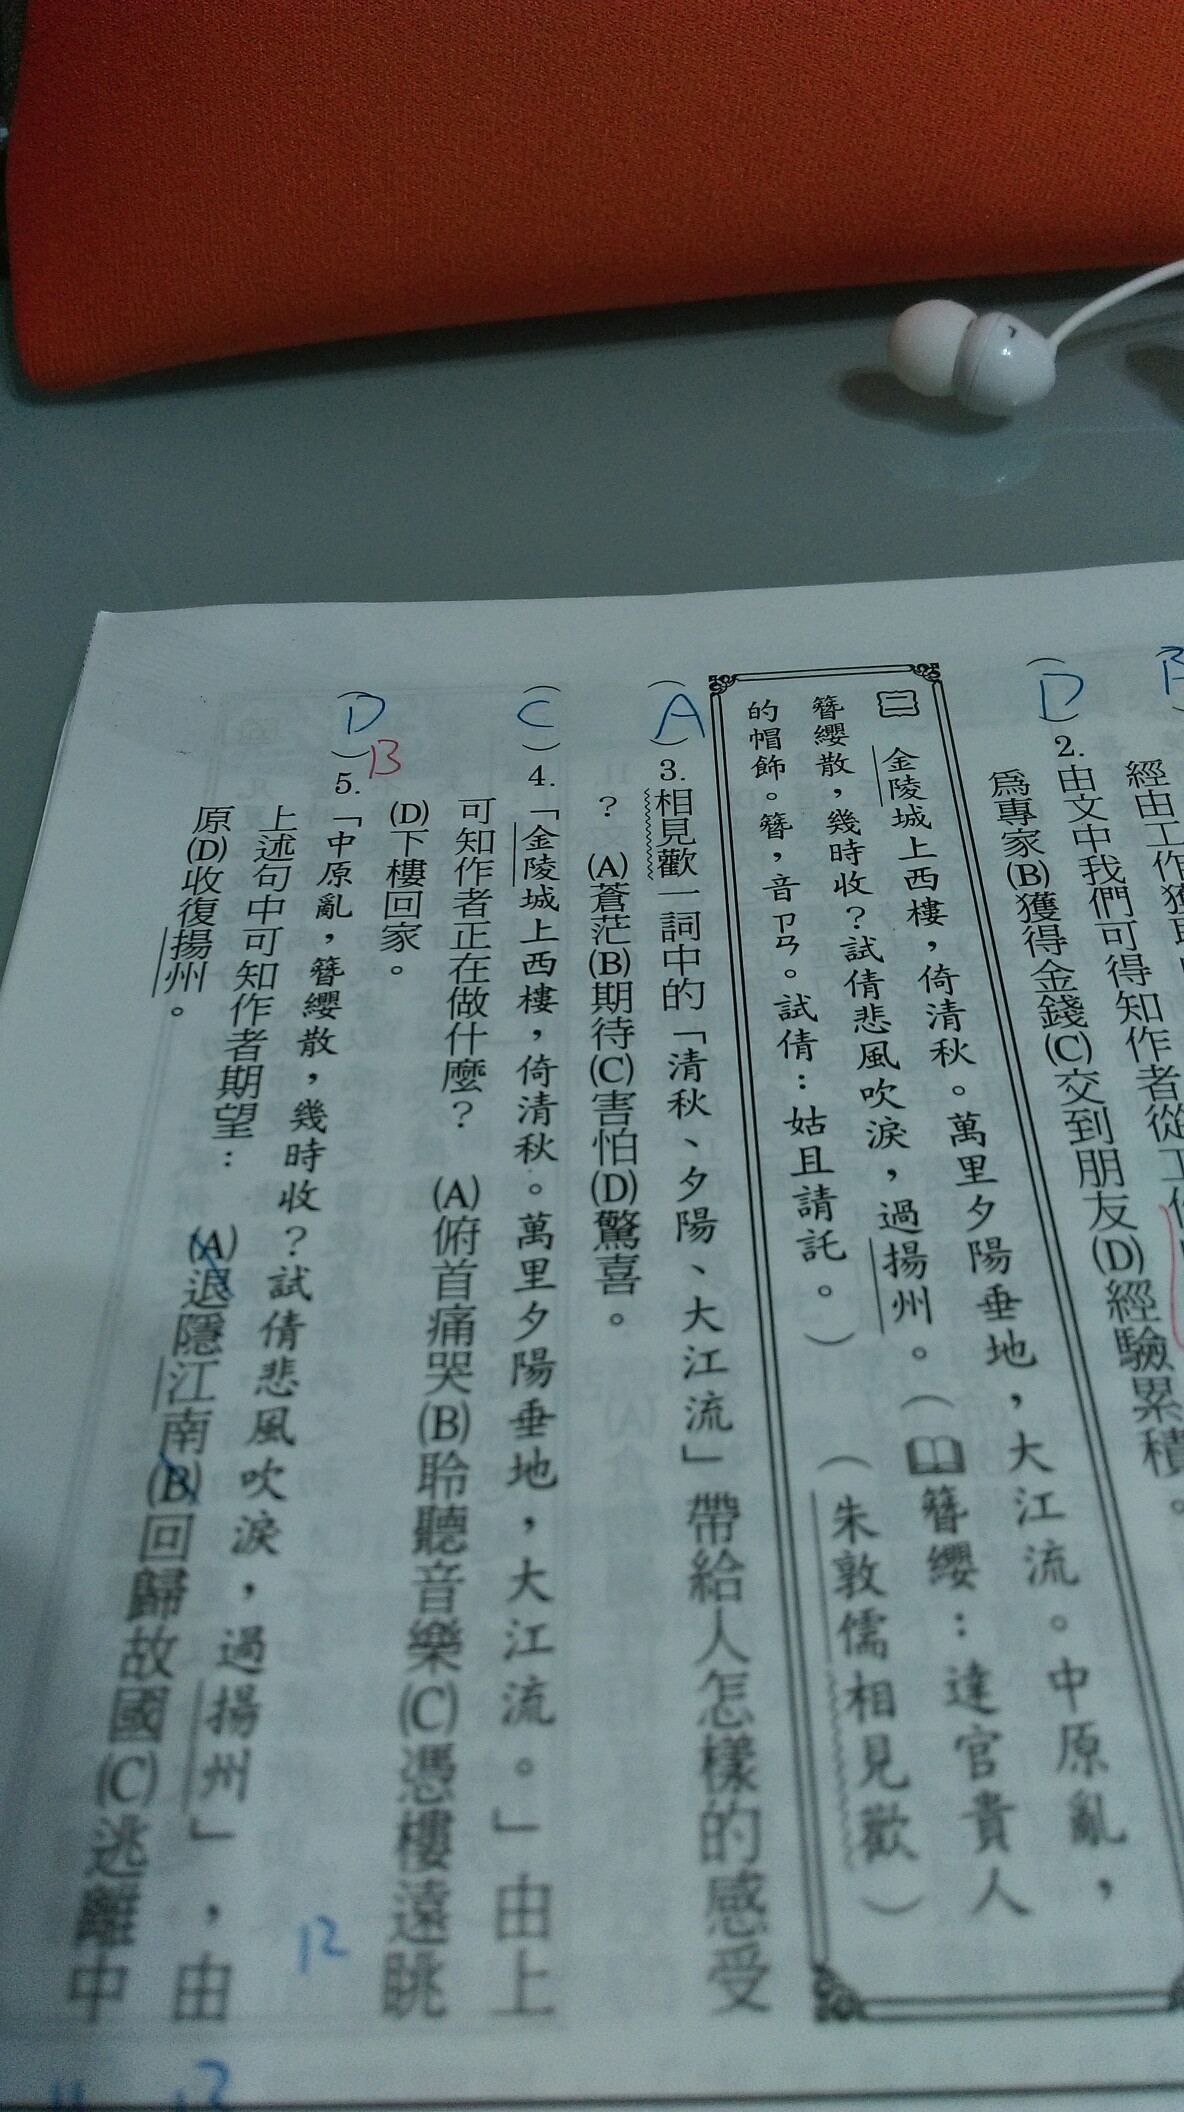 經由工作獲取
B
(D)2.由文中我們可得知作者從工作
為專家(B)獲得金錢(C)交到朋友(D)經驗累積。
二 金陵城上西樓，倚清秋。萬里夕陽垂地，大江流。中原亂，
簪纓散，幾時收？試倩悲風吹淚，過揚州。（簪纓：達官貴人
的帽飾。簪，音ㄗㄢ。試倩：姑且請託。）（朱敦儒相見歡）
(A)3.相見歡一詞中的「清秋、夕陽、大江流」帶給人怎樣的感受
？ (A)蒼茫(B)期待(C)害怕(D)驚喜。
(C)4.「金陵城上西樓，倚清秋。萬里夕陽垂地，大江流。」由上
可知作者正在做什麼？ (A)俯首痛哭(B)聆聽音樂(C)憑樓遠眺
(D)下樓回家。
(D)5.「中原亂，簪纓散，幾時收？試倩悲風吹淚，過揚州」，由
B
上述句中可知作者期望： (A)退隱江南(B)回歸故國(C)逃離中
原(D)收復揚州。
12